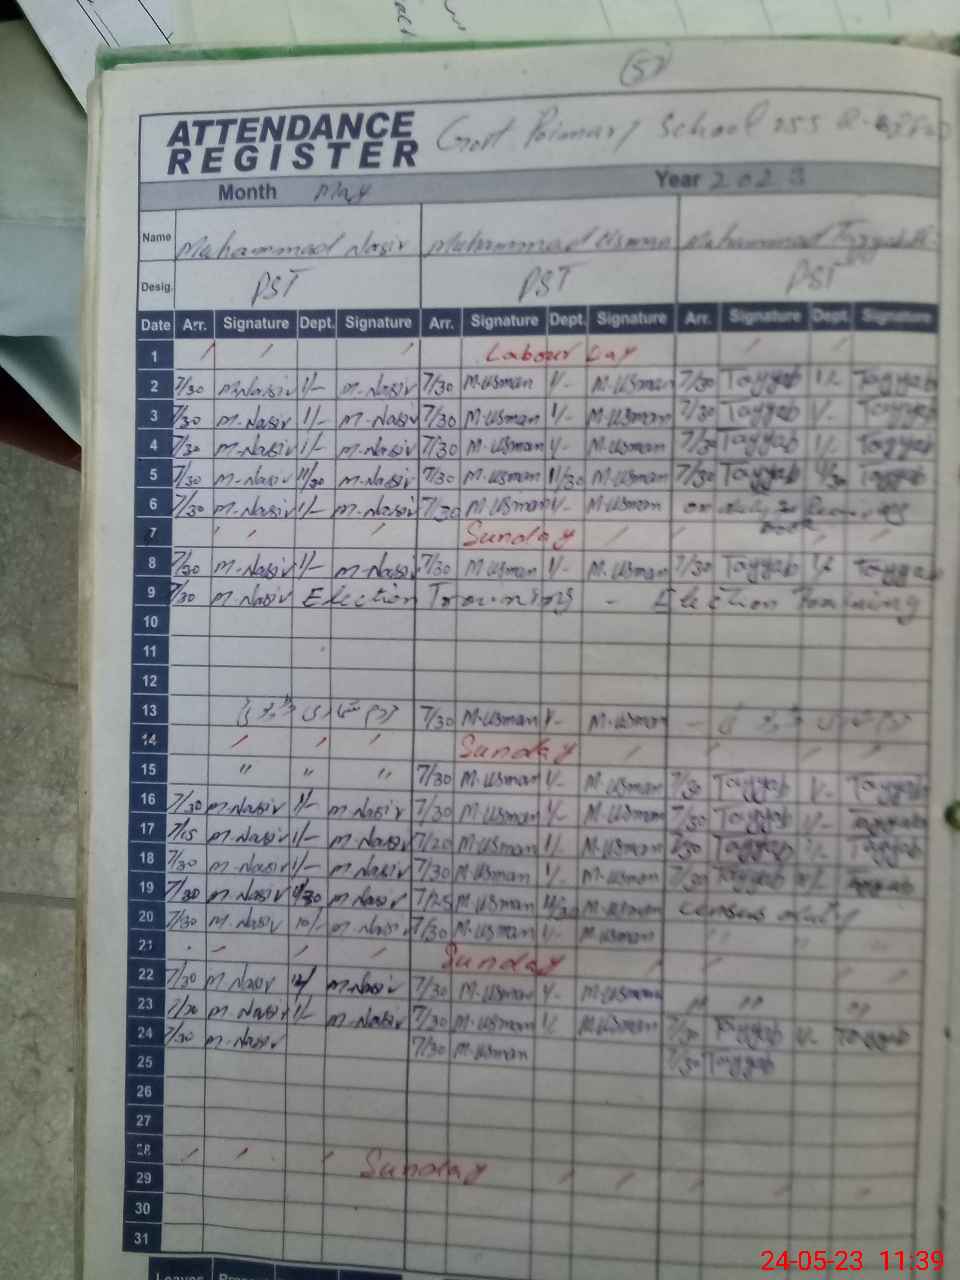 (52)
ATTENDANCE REGISTER Govt Primary School
Month May Year 2023
Name Muhammad Nasir Muhammad Usman Muhammad Tayyab
Desig. PST PST PST
Date Arr. Signature Dept. Signature Arr. Signature Dept. Signature Arr. Signature Dept. Signature
1 Labour Day
2 7/30 M-Nasir 1/- M-Nasir 7/30 M-Usman 1/- M-Usman 7/30 Tayyab 1/- Tayyab
3 7/30 M-Nasir 1/- M-Nasir 7/30 M-Usman 1/- M-Usman 7/30 Tayyab 1/- Tayyab
4 7/30 M-Nasir 1/- M-Nasir 7/30 M-Usman 1/- M-Usman 7/30 Tayyab 1/- Tayyab
5 7/30 M-Nasir 11/30 M-Nasir 7/30 M-Usman 11/30 M-Usman 7/30 Tayyab 11/30 Tayyab
6 7/30 M-Nasir 1/- M-Nasir 7/30 M-Usman 1/- M-Usman on duty
7 Sunday
8 7/30 M-Nasir 1/- M-Nasir 7/30 M-Usman 1/- M-Usman 7/30 Tayyab 1/- Tayyab
9 7/30 M-Nasir Election Training - Election Training
10
11
12
13 7/30 M-Usman 1/- M-Usman
14 Sunday
15 " " " 7/30 M-Usman 1/- M-Usman 7/30 Tayyab 1/- Tayyab
16 7/30 M-Nasir 1/- M-Nasir 7/30 M-Usman 1/- M-Usman 7/30 Tayyab 1/- Tayyab
17 7/15 M-Nasir 1/- M-Nasir 7/20 M-Usman 1/- M-Usman 7/30 Tayyab 1/- Tayyab
18 7/30 M-Nasir 1/- M-Nasir 7/30 M-Usman 1/- M-Usman 7/30 Tayyab Tayyab
19 7/30 M-Nasir 11/30 M-Nasir 7/25 M-Usman 11/30 M-Usman Census duty
20 7/30 M-Nasir M-Nasir 7/30 M-Usman 1/- M-Usman " "
21 Sunday
22 7/30 M-Nasir M-Nasir 7/30 M-Usman 1/- M-Usman " " "
23 7/30 M-Nasir 1/- M-Nasir 7/30 M-Usman 1/- M-Usman 7/30 Tayyab 1/- Tayyab
24 7/30 M-Nasir 7/30 M-Usman 7/30 Tayyab
25
26
27
28 Sunday
29
30
31
Leaves
24-05-23 11:39